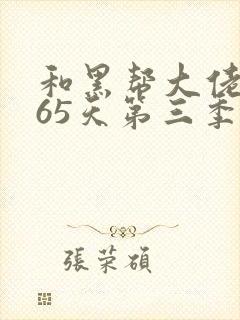 和黑帮大佬
65天第三季
張荣碩